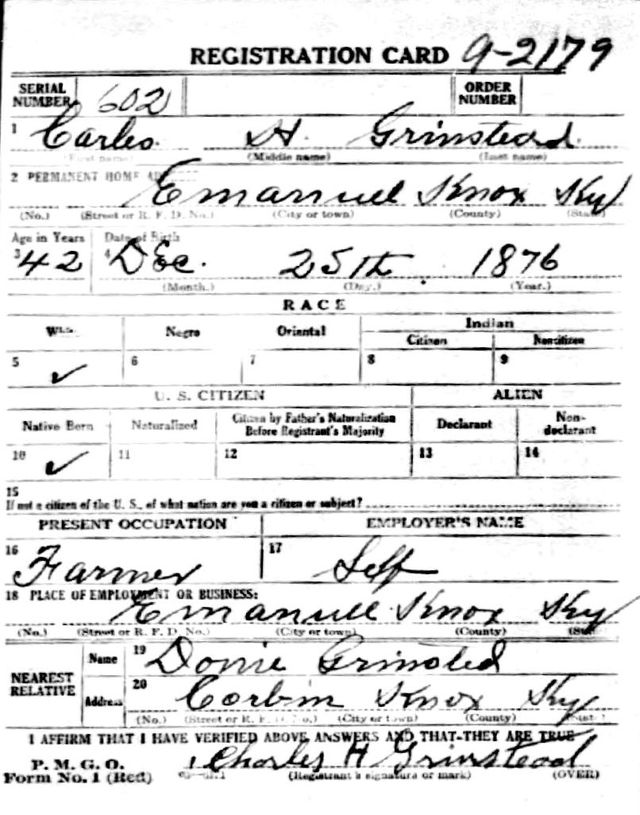 REGISTRATION CARD 9-2179
SERIAL NUMBER 602 ORDER NUMBER
1 Carles H. Grinstead.
(First name) (Middle name) (Last name)
2 PERMANENT HOME
Emanuell Knox Ky
(No.) (Street or R. F. D. No.) (City or town) (County) (State)
Age in Years Date of Birth
3 42 4 Dec. 25th. 1876
(Month.) (Day.) (Year.)
RACE
Negro Oriental Indian
Citizen Noncitizen
5 ✓ 6 7 8 9
U. S. CITIZEN ALIEN
Native Born Naturalized Citizen by Father's Naturalization Before Registrant's Majority Declarant Non-declarant
10 ✓ 11 12 13 14
15
If not a citizen of the U. S., of what nation are you a citizen or subject?
PRESENT OCCUPATION EMPLOYER'S NAME
16 Farmer 17 Self
18 PLACE OF EMPLOYMENT OR BUSINESS:
Emanuell Knox Ky
(No.) (Street or R. F. D. No.) (City or town) (County)
NEAREST RELATIVE Name 19 Grinsted
Address 20 Corbin Knox Ky
(No.) (Street or R. F. D. No.) (City or town) (County)
I AFFIRM THAT I HAVE VERIFIED ABOVE ANSWERS AND THAT THEY ARE TRUE
P. M. G. O.
Form No. 1 (Red) Charles H Grinstead
(Registrant's signature or mark) (OVER)